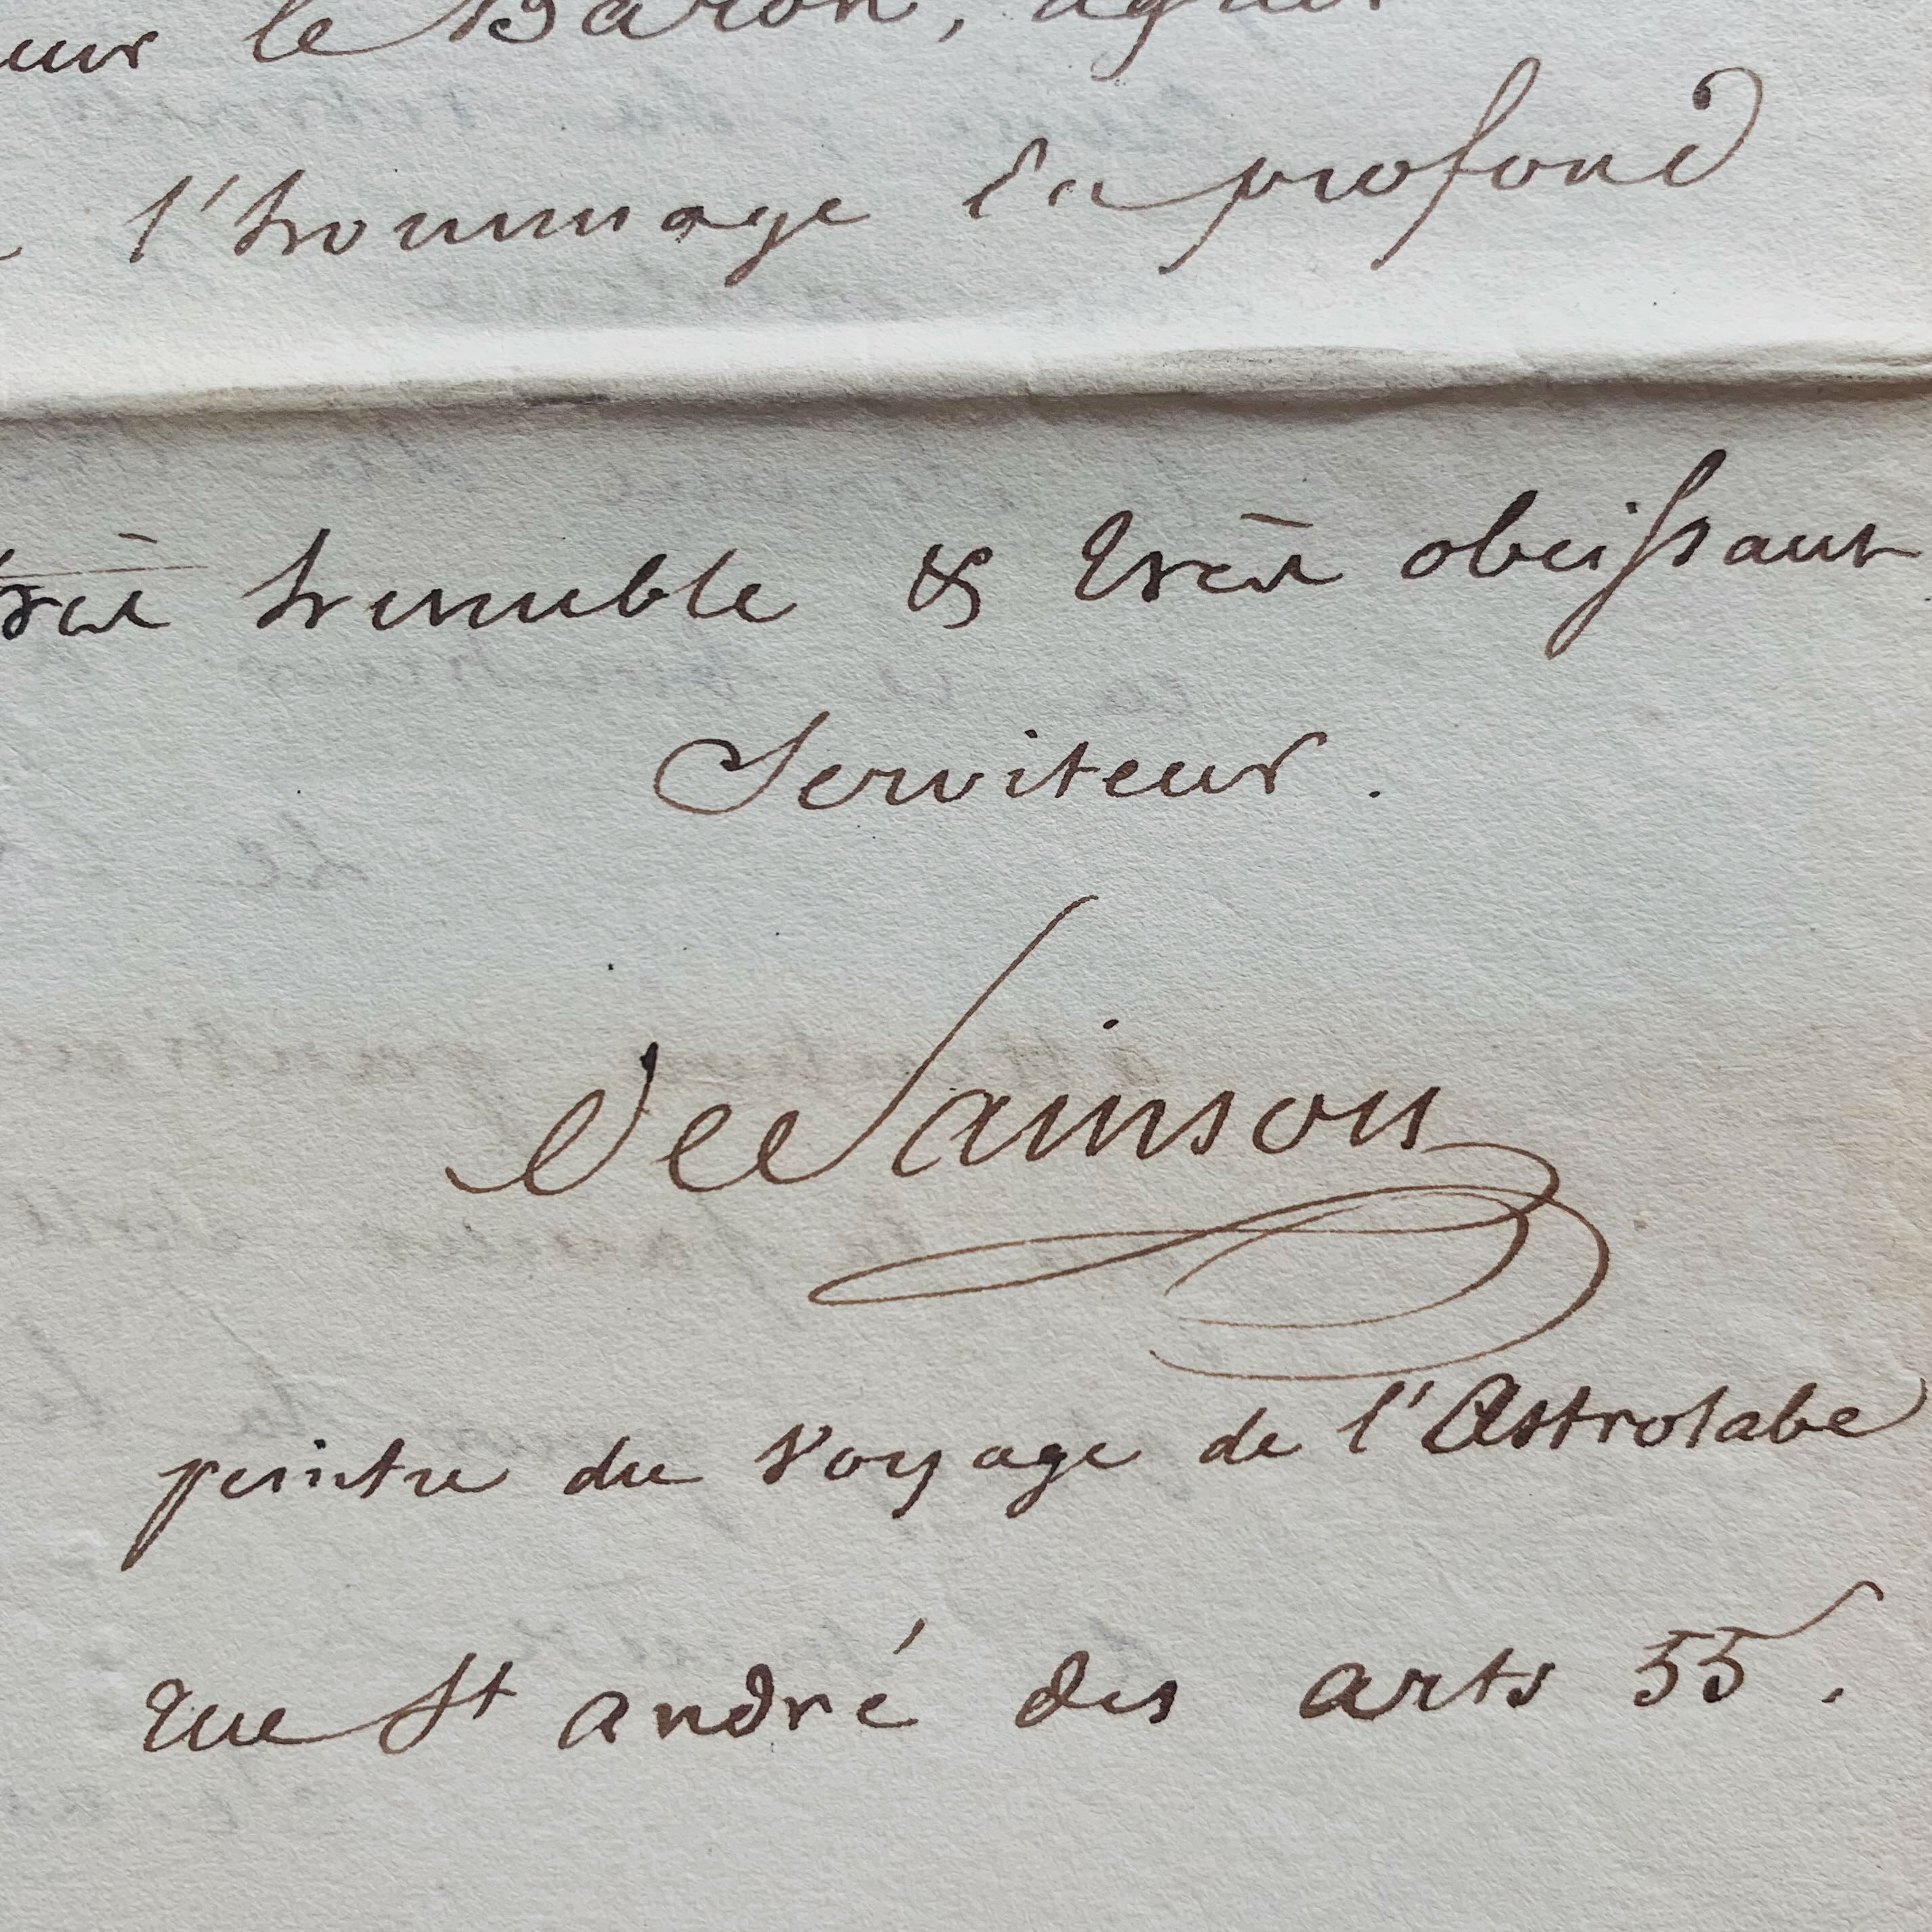 le Baron,
l'hommage du profond
très humble & très obeissant
Serviteur.
de Sainson
peintre du voyage de l'Astrolabe
rue St andré des arts 55.